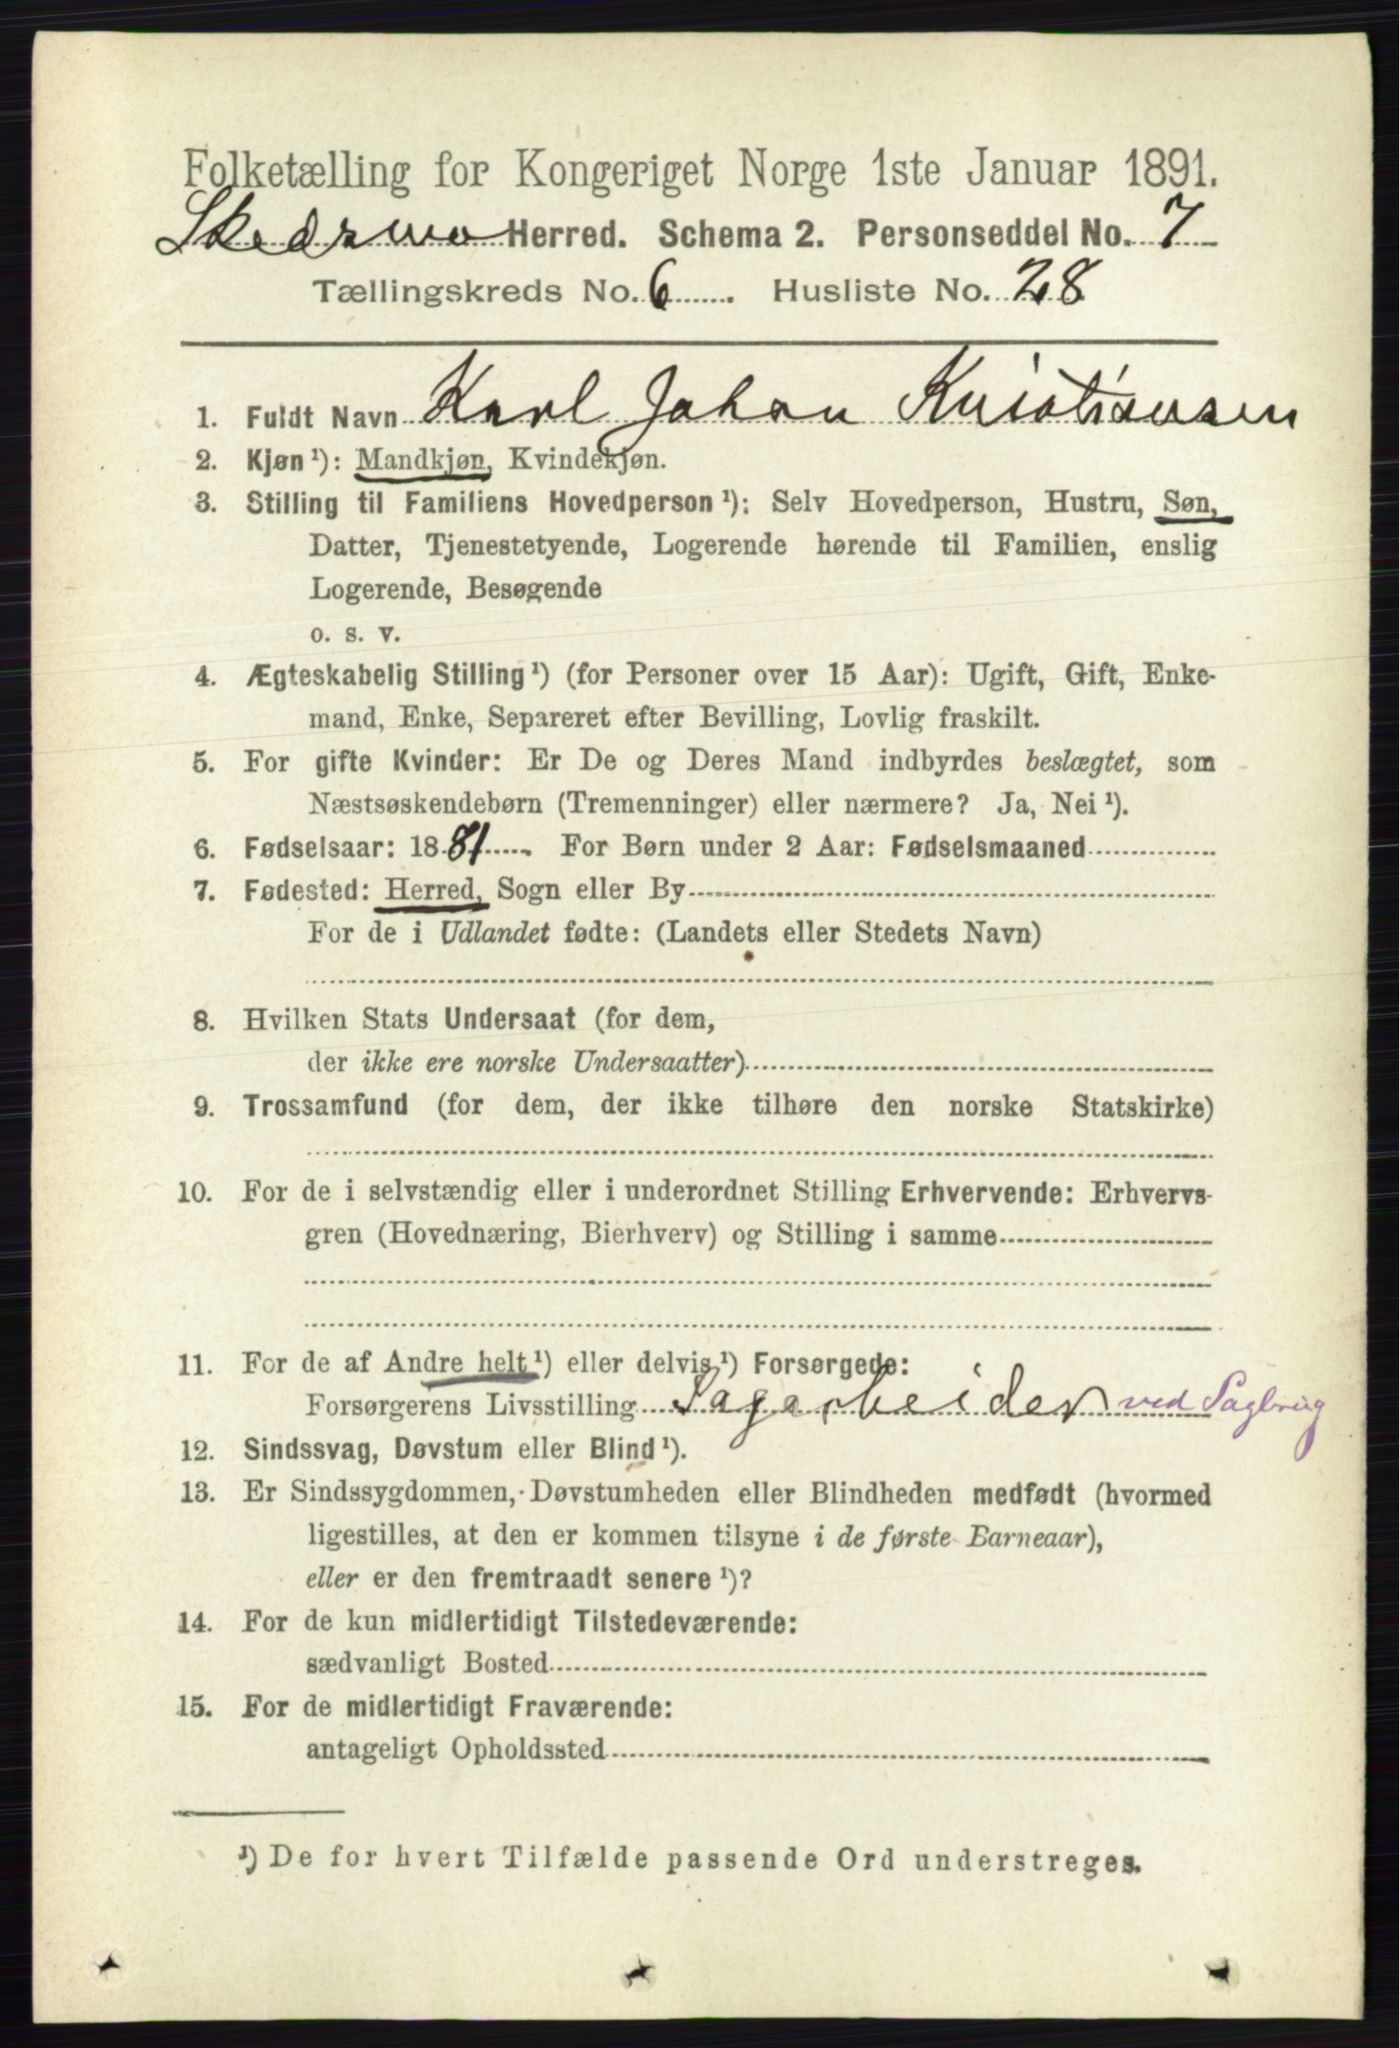 Folketælling for Kongeriget Norge 1ste Januar 1891.
Skedsmo Herred. Schema 2. Personseddel No. 7
Tællingskreds No. 6. Husliste No. 28
1. Fuldt Navn Karl Johan Kristiansen
2. Kjøn¹): Mandkjøn, Kvindekjøn.
3. Stilling til Familiens Hovedperson¹): Selv Hovedperson, Hustru, Søn,
Datter, Tjenestetyende, Logerende hørende til Familien, enslig
Logerende, Besøgende
o. s. v.
4. Ægteskabelig Stilling¹) (for Personer over 15 Aar): Ugift, Gift, Enke-
mand, Enke, Separeret efter Bevilling, Lovlig fraskilt.
5. For gifte Kvinder: Er De og Deres Mand indbyrdes beslægtet, som
Næstsøskendebørn (Tremenninger) eller nærmere? Ja, Nei¹).
6. Fødselsaar: 1881. For Børn under 2 Aar: Fødselsmaaned
7. Fødested: Herred, Sogn eller By
For de i Udlandet fødte: (Landets eller Stedets Navn)
8. Hvilken Stats Undersaat (for dem,
der ikke ere norske Undersaatter)
9. Trossamfund (for dem, der ikke tilhøre den norske Statskirke)
10. For de i selvstændig eller i underordnet Stilling Erhvervende: Erhvervs-
gren (Hovednæring, Bierhverv) og Stilling i samme
11. For de af Andre helt¹) eller delvis¹) Forsørgede:
Forsørgerens Livsstilling Sagarbeider ved Sagbrug
12. Sindssvag, Døvstum eller Blind¹).
13. Er Sindssygdommen, Døvstumheden eller Blindheden medfødt (hvormed
ligestilles, at den er kommen tilsyne i de første Barneaar),
eller er den fremtraadt senere¹)?
14. For de kun midlertidigt Tilstedeværende:
sædvanligt Bosted
15. For de midlertidigt Fraværende:
antageligt Opholdssted
¹) De for hvert Tilfælde passende Ord understreges.